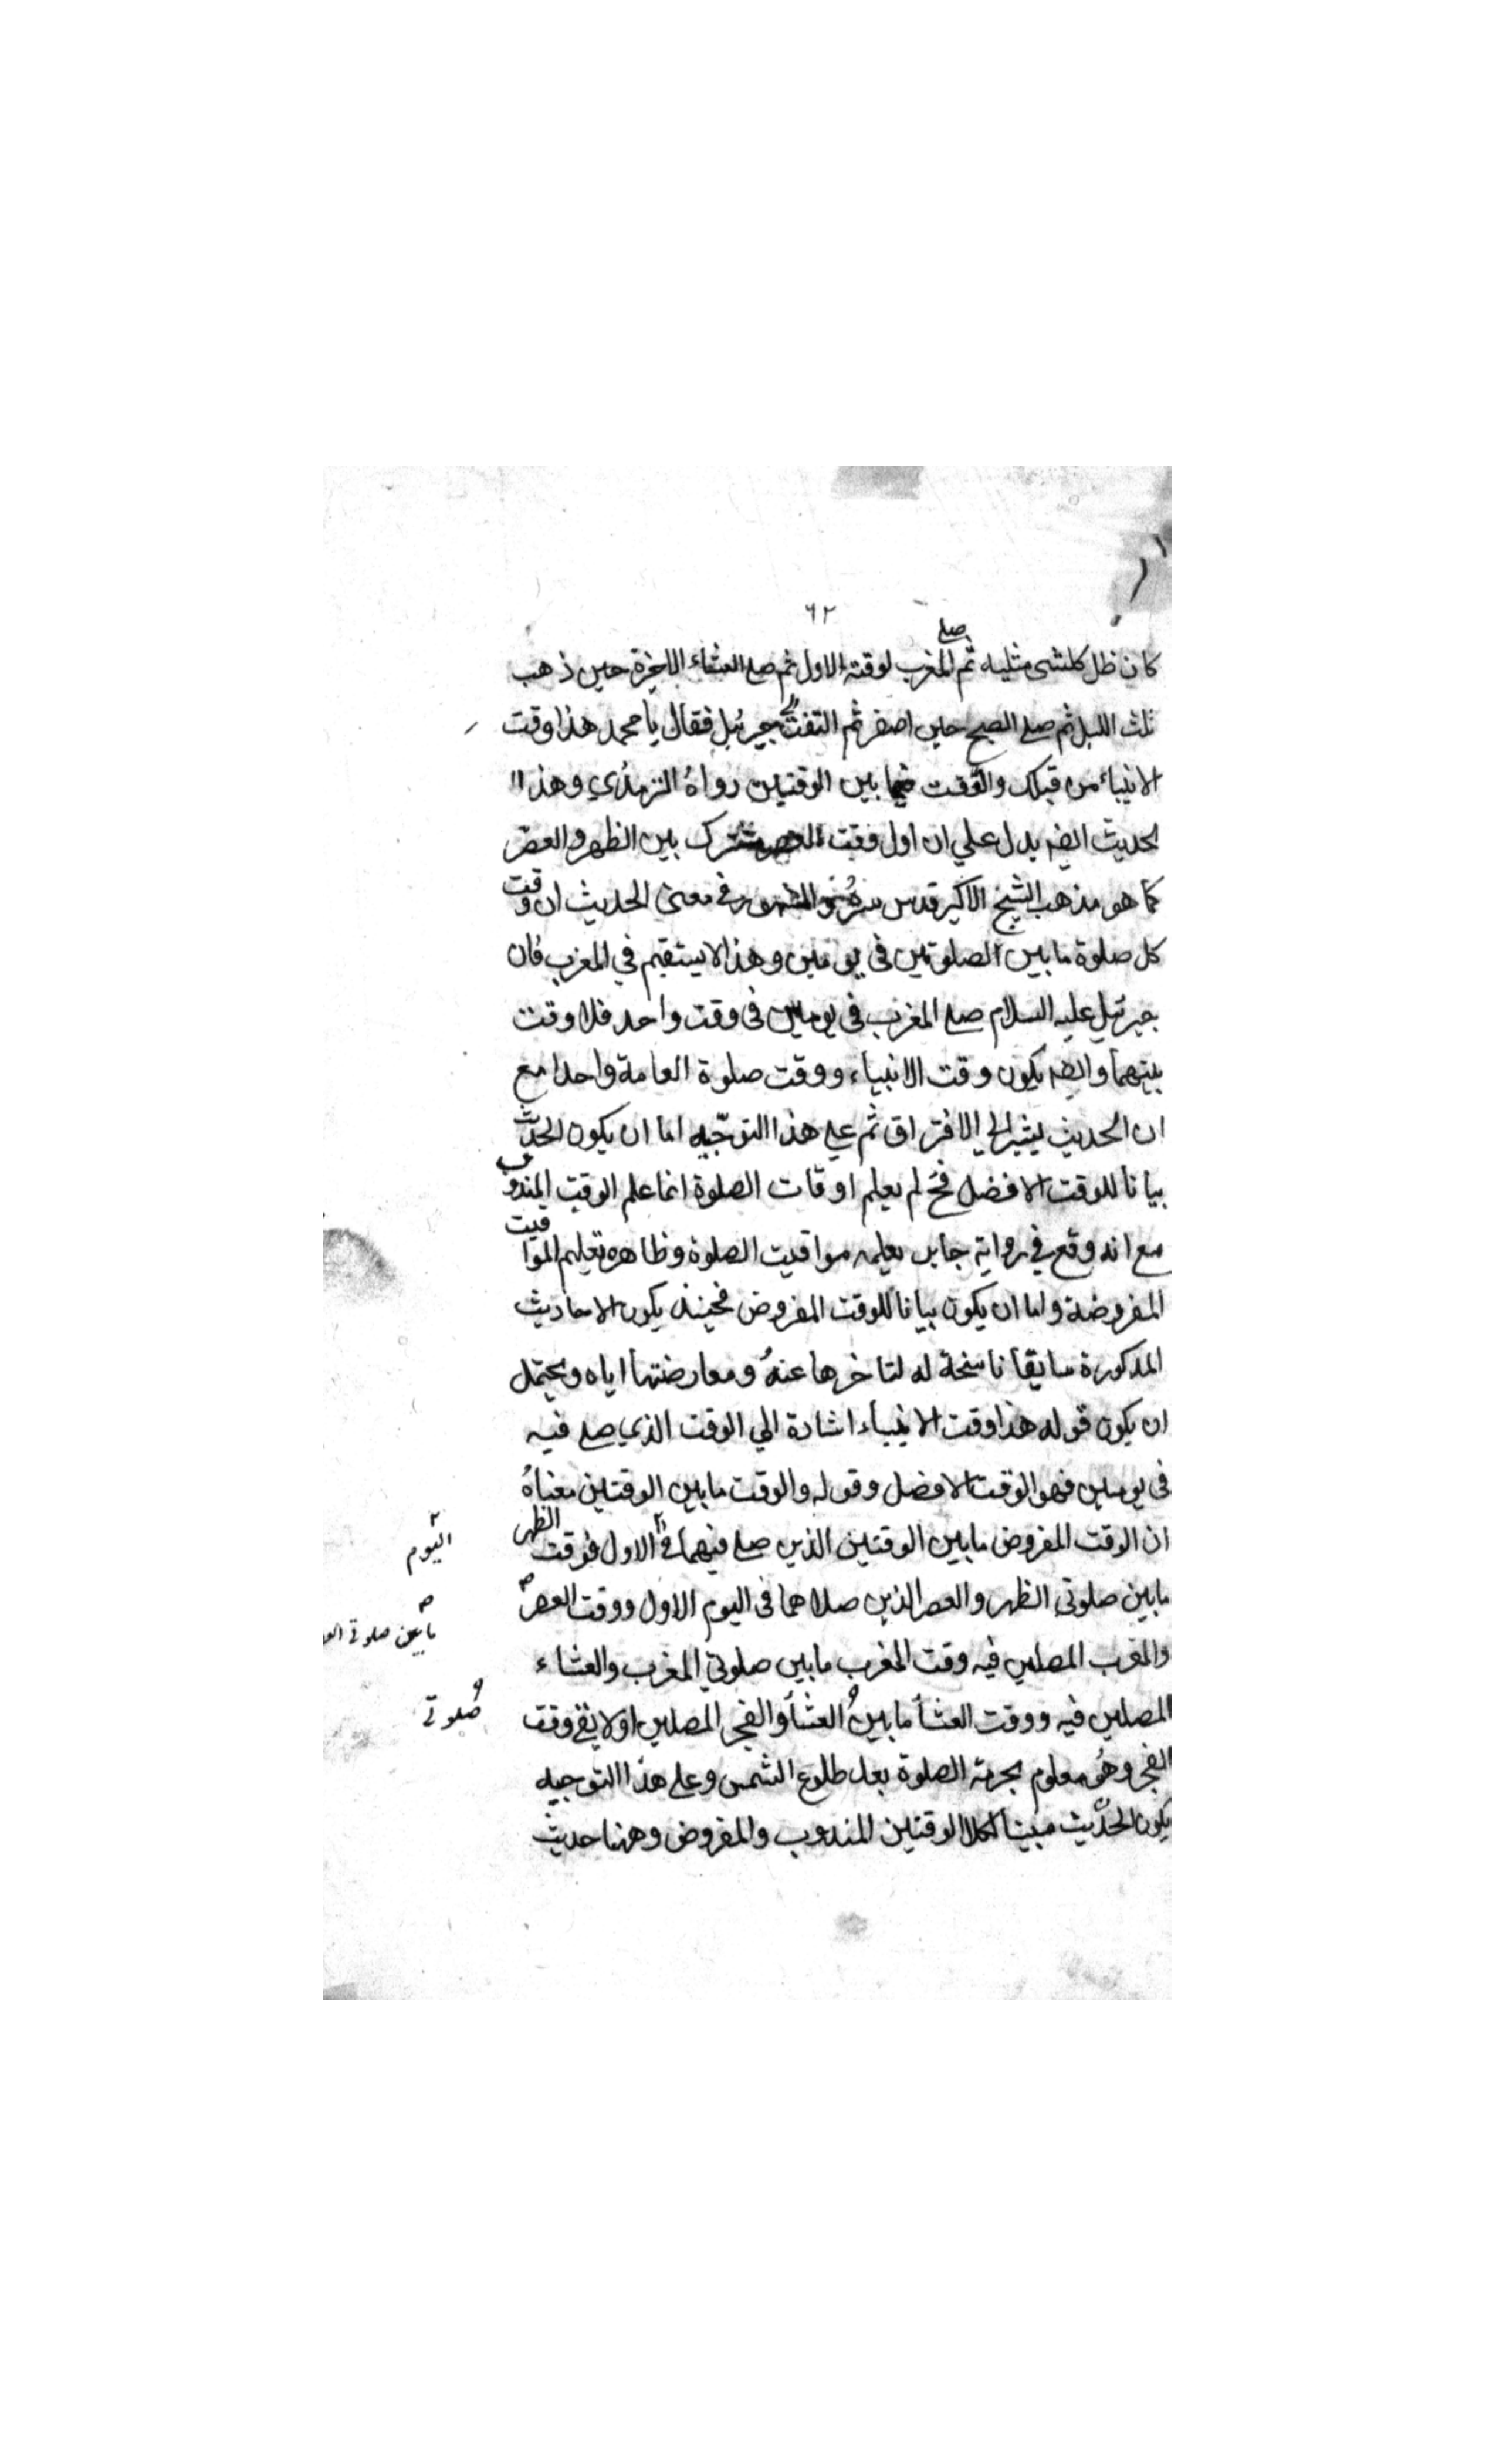 ٦٢
كان ظل كلشى مثليه ثم صلے المغرب لوقته الاول ثم صلے العشاء الاخرة حين ذهب
ثلث الليل ثم صلے الصبح حين اصفر ثم التفت الي جبرئيل فقال يا محمد هذا وقت
الانبياء من قبلك والوقت فيما بين الوقتين رواه الترمذي وهذا
الحديث ايضه يدل علي ان اول وقت العصر مشترك بين الظهر والعصر
كما هو مذهب الشيخ الاكبر قدس سره والمشهور في معنى الحديث ان وقت
كل صلوة ما بين الصلوتين في يومين وهذا لا يستقيم في المغرب فان
جبرئيل عليه السلام صلے المغرب في يومين في وقت واحد فلا وقت
بينهما وايضه يكون وقت الانبياء ووقت صلوة العامة واحدا مع
ان الحديث يشير الي الافتراق ثم علے هذا التوجيه اما ان يكون الحديث
بيانا للوقت الافضل فح لم يعلم اوقات الصلوة انما علم الوقت المندوب
مع انه وقع في رواية جابر يعلمه مواقيت الصلوة وظاهره تعليم المواقيت
المفروضة واما ان يكون بيانا للوقت المفروض فحينئذ يكون الاحاديث
المذكورة سابقا ناسخة له لتاخرها عنه ومعارضتها اياه ويحتمل
ان يكون قوله هذا وقت الانبياء اشارة الي الوقت الذي صلے فيه
في يومين فهو الوقت الافضل وقوله والوقت ما بين الوقتين معناه
ان الوقت المفروض ما بين الوقتين الذين صلے فيهما في الاول فوقت الظهر
اليوم
ما بين صلوتي الظهر والعصر الذين صلاهما في اليوم الاول ووقت العصر
ما بين صلوتي
والمغرب المصلين فيه وقت المغرب ما بين صلوتي المغرب والعشاء
المصلين فيه ووقت العشأ ما بين العشأ والفجر المصلين اولا بقي وقت
صلوتي
الفجر وهو معلوم بحرمة الصلوة بعد طلوع الشمس وعلے هذا التوجيه
يكون الحديث مبينا لكلا الوقتين المندوب والمفروض وههنا حديث